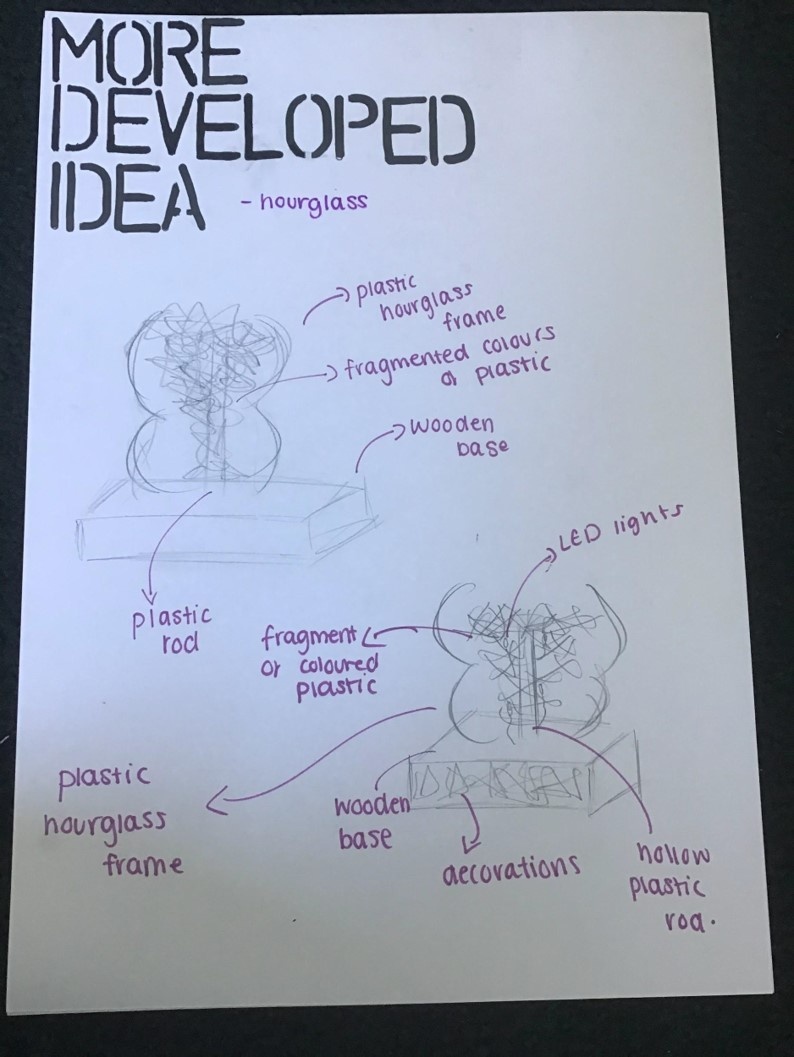 MORE
DEVELOPED
IDEA - hourglass
plastic
hourglass
frame
fragmented colours
of plastic
wooden
base
plastic
rod
LED lights
fragment
or coloured
plastic
plastic
hourglass
frame
wooden
base
decorations
hollow
plastic
rod.